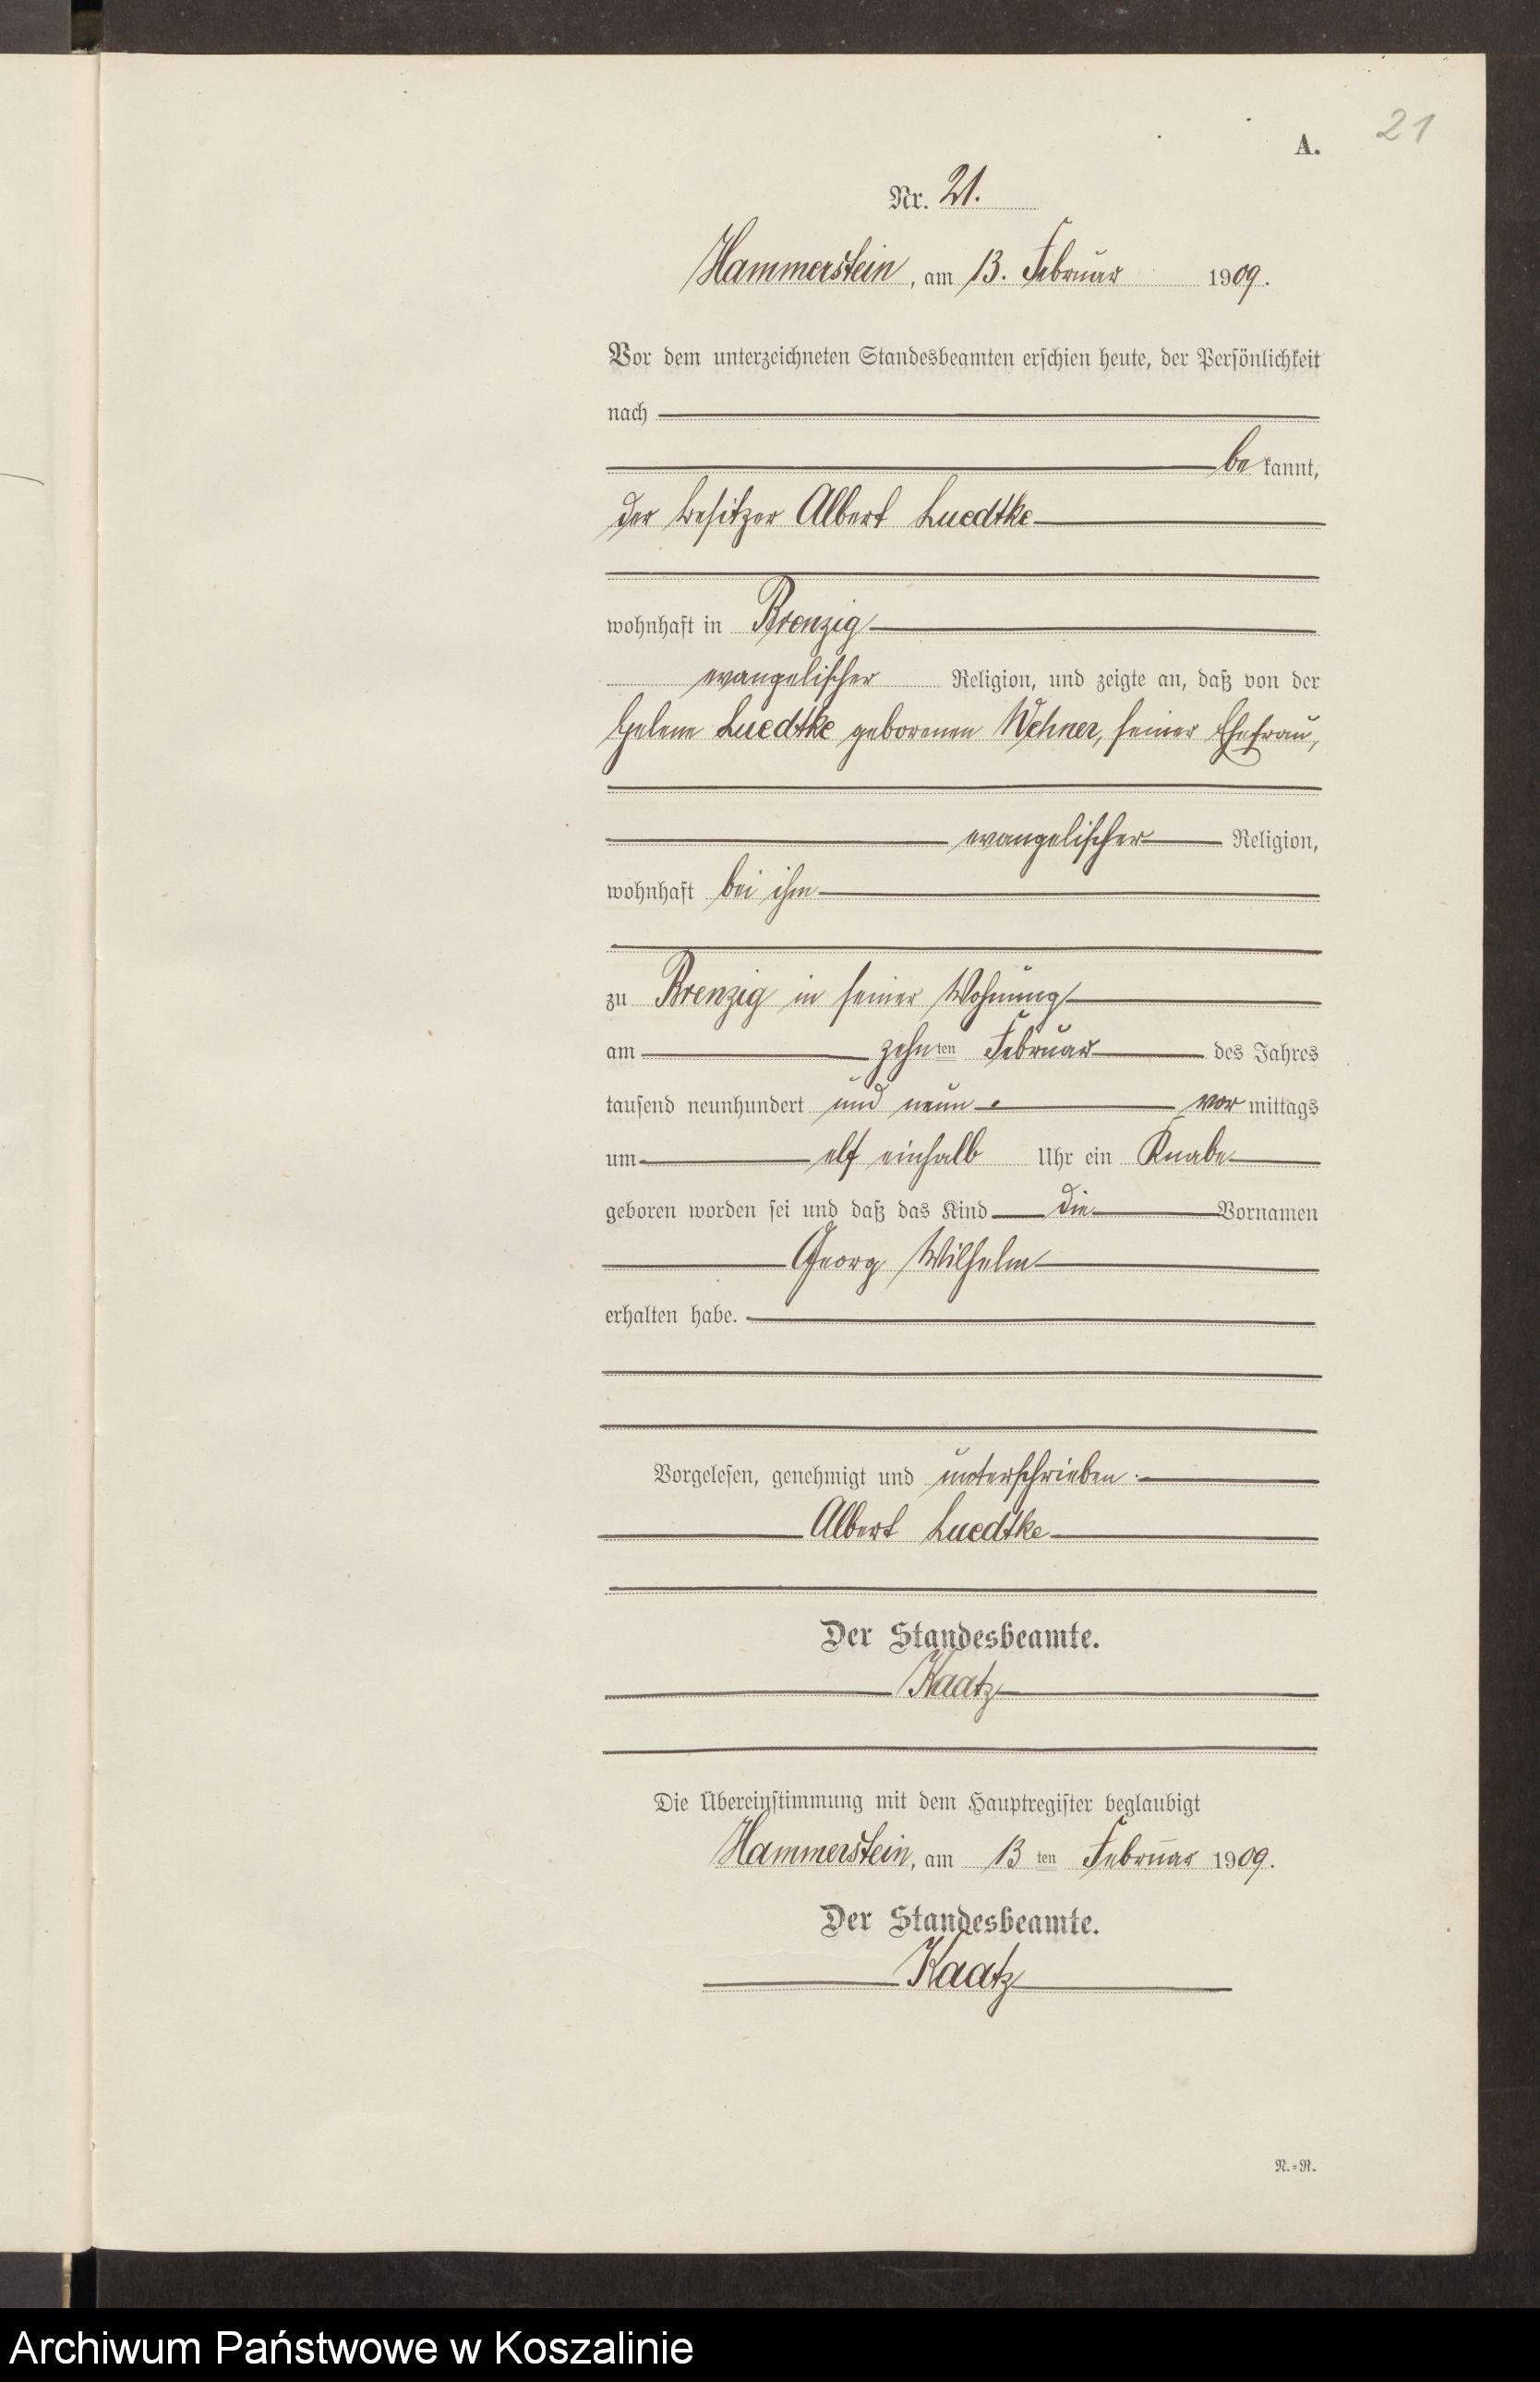 21
A.
Nr. 21.
Hammerstein, am 13. Februar 1909.
Vor dem unterzeichneten Standesbeamten erschien heute, der Persönlichkeit
nach
be kannt,
der Besitzer Albert Luedtke
wohnhaft in Brenzig
evangelischer Religion, und zeigte an, daß von der
Helene Luedtke geborenen Wehner, seiner Ehefrau,
evangelischer Religion,
wohnhaft bei ihm
zu Brenzig in seiner Wohnung
am zehn ten Februar des Jahres
tausend neunhundert und neun vor mittags
um elf einhalb Uhr ein Knabe
geboren worden sei und daß das Kind die Vornamen
Georg Wilhelm
erhalten habe.
Vorgelesen, genehmigt und unterschrieben.
Albert Luedtke
Der Standesbeamte.
Kaatz
Die Übereinstimmung mit dem Hauptregister beglaubigt
Hammerstein, am 13 ten Februar 1909.
Der Standesbeamte.
Kaatz
N.=R.
Archiwum Państwowe w Koszalinie